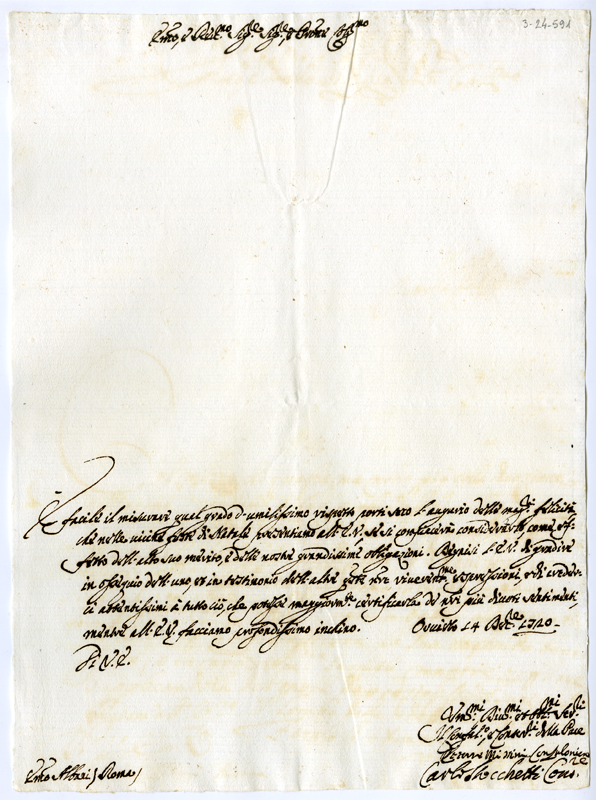 3-24-591
Em̃o, e Rev.mo Sig.re Sig.re, e Prone Col.mo
È facile il misurare qual grado d'umilissimo rispetto porti seco l'augurio delle mag.ri felicità
che nelle vicine feste di Natale presentiamo all'E.V. se si compiacerà considerarlo come ef-
fetto dell'alto suo merito, e delle nostre grandissime obligazioni. Supp.mo l'E.V. di gradire
in ossequio dell'uno, et in testimonio dell'altre queste nre riverent.me espressioni, e di creder-
ci attentissimi à tutto ciò, che potesse maggiorm.te certificarla de nri più divoti sentimenti
mentre all'E.V. facciamo profondissimo inchino. Orvieto 14 Xbre 1720
Di V.E.
Um.mi Div.mi et Obb.mi Ser.ri
Il Confal.re e Conser.ri della Pace
Confaloniere
Carlo Stocchetti Cons.re
Em̃o Albani / Roma /